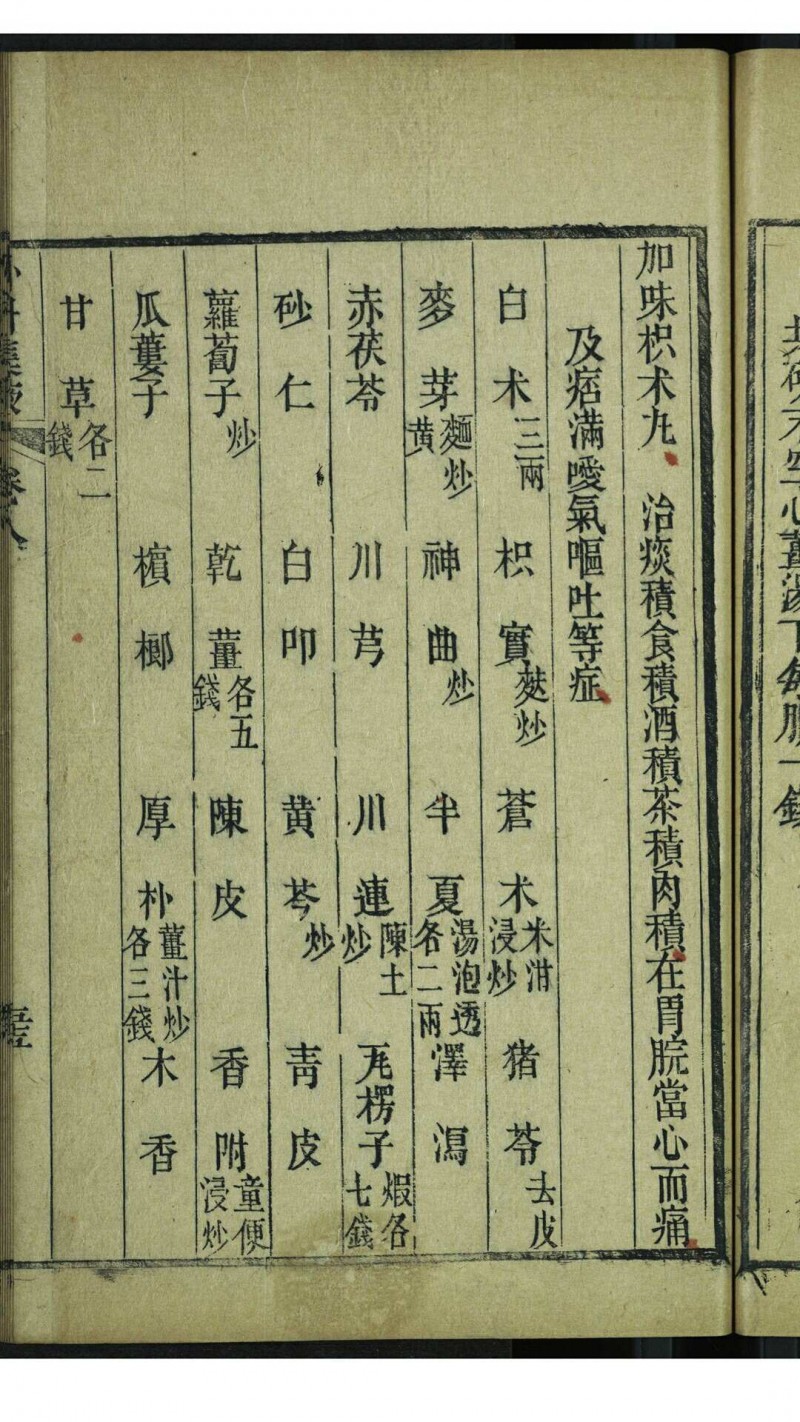 空心薑湯下每服一錢
加味枳朮丸 治痰積食積酒積茶積肉積在胃脘當心而痛
及痞滿噯氣嘔吐等症
白朮三兩 枳實麩炒 蒼朮米泔浸炒 猪苓去皮
麥芽麵炒黄 神曲炒 半夏湯泡透各二兩 澤瀉
赤茯苓 川芎 川連陳土炒 瓦楞子煆各七錢
砂仁 白叩 黄芩炒 青皮
蘿蔔子炒 乾薑各五錢 陳皮 香附童便浸炒
瓜蔞子 檳榔 厚朴薑汁炒各三錢 木香
甘草各二錢
卷八